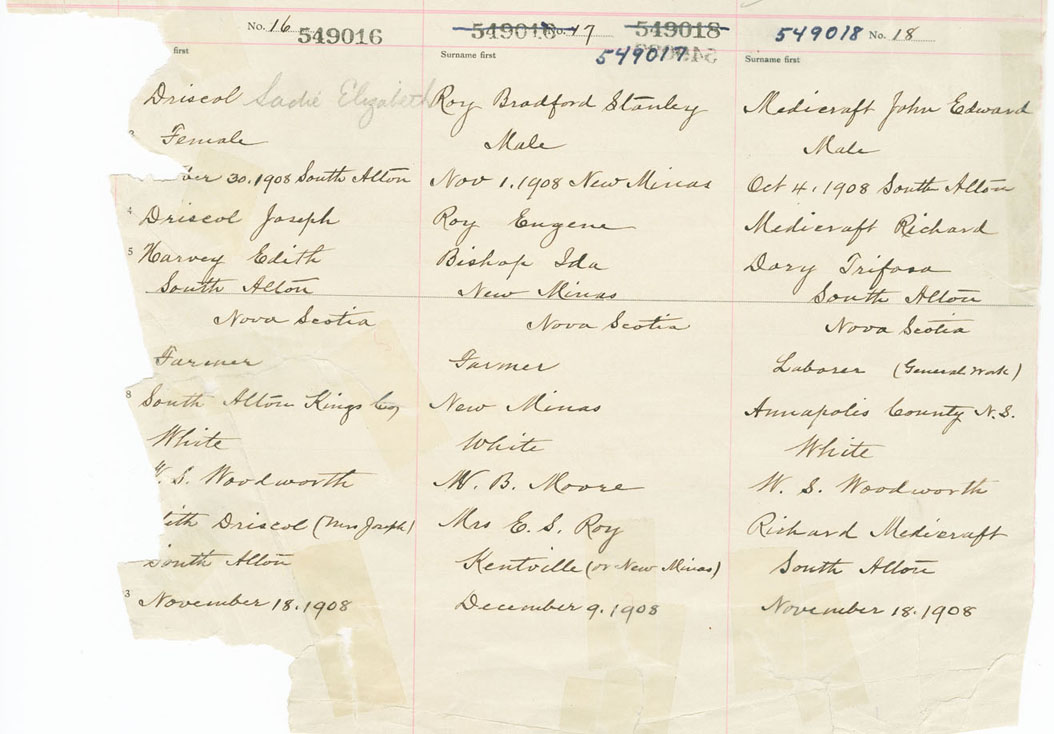 No. 16 549016
first
Driscol Sadie Elizabeth
Female
30. 1908 South Alton
4 Driscol Joseph
5 Harvey Edith
South Alton
Nova Scotia
Farmer
8 South Alton Kings Co
White
W. S. Woodworth
Driscol (Mrs Joseph)
South Alton
3 November 18. 1908
549016 No. 17 549018
549017
Surname first
Roy Bradford Stanley
Male
Nov 1. 1908 New Minas
Roy Eugene
Bishop Ida
New Minas
Nova Scotia
Farmer
New Minas
White
W. B. Moore
Mrs E. S. Roy
Kentville (or New Minas)
December 9. 1908
549018 No. 18
Surname first
Medicraft John Edward
Male
Oct 4. 1908 South Alton
Medicraft Richard
Dory Trifosa
South Alton
Nova Scotia
Laborer (General Work)
Annapolis County N.S.
White
W. S. Woodworth
Richard Medicraft
South Alton
November 18. 1908